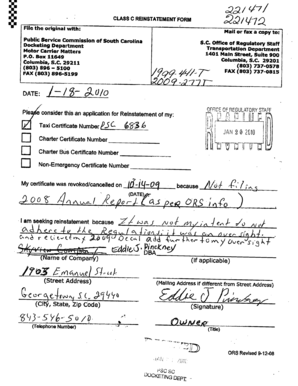 221471
221472
CLASS C REINSTATEMENT FORM
File the original with:
Public Service Commission of South Carolina
Docketing Department
Motor Carrier Matters
P.O. Box 11649
Columbia, S.C. 29211
(803) 896 – 5100
FAX (803) 896-5199
Mail or fax a copy to:
S.C. Office of Regulatory Staff
Transportation Department
1401 Main Street, Suite 900
Columbia, S.C. 29201
(803) 737-0578
FAX (803) 737-0815
DATE: 1-18-2010
Please consider this an application for Reinstatement of my:
Taxi Certificate Number PSC 6836
Charter Certificate Number
Charter Bus Certificate Number
Non-Emergency Certificate Number
OFFICE OF REGULATORY STAFF
JAN 20 2010
My certificate was revoked/cancelled on 10-14-09 because Not filing
(DATE)
2008 Annual Report (as per ORS info)
I am seeking reinstatement because It was not my intent to not
adhere to the Regulations, it was an oversight.
and recieving 2009 Decal add further to my oversight
Eddie J. Pinckney
(Name of Company)
DBA
(If applicable)
1903 Emanuel Street
(Street Address)
(Mailing Address if different from Street Address)
Georgetown, S.C. 29440
(City, State, Zip Code)
Eddie J Pinckney
(Signature)
843-546-5010
(Telephone Number)
OWNER
(Title)
ORS Revised 9-12-08
PSC SC
DOCKETING DEPT